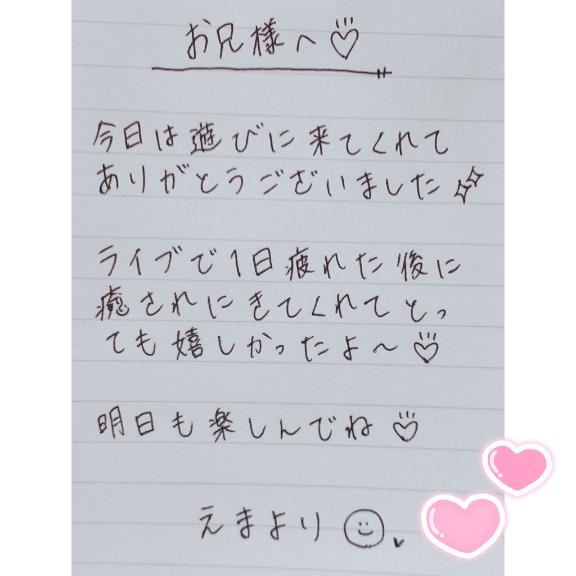 お兄様へ♡
今日は遊びに来てくれて
ありがとうございました✨
ライブで1日疲れた後に
癒されにきてくれてとっ
ても嬉しかったよ〜♡
明日も楽しんでね♡
えまより☺